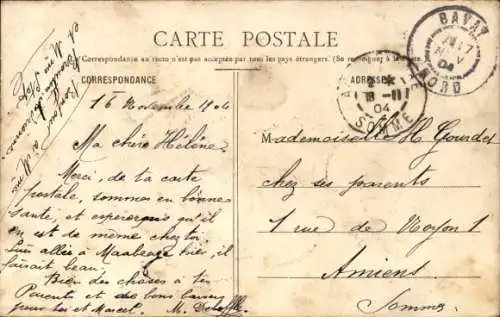 CARTE POSTALE
Correspondance au recto n'est pas acceptée par tous les pays étrangers. (Se renseigner à la
CORRESPONDANCE
ADRESSE
BAVAY
17
NOV
04
NORD
2
18-11
04
SOMME
16 Novembre 1904
Ma chère Hélène
Merci, de ta carte
postale, sommes en bonne
santé, et espérons qu'il
en est de même chez toi
Suis allée à Maubeuge hier, il
faisait beau.
Bien des choses à tes
Parents et de bons baisers
pour toi et Marcel. M.
Mademoiselle H. Gourdes
chez ses parents
1 rue de Noyon 1
Amiens
Somme